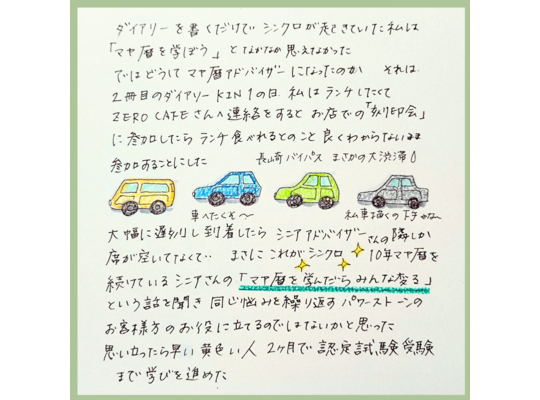 ダイアリーを書くだけで シンクロが起きていた私は
「マヤ暦を学ぼう」 となかなか思えなかった
ではどうして マヤ暦アドバイザーになったのか それは
2冊目のダイアリー KIN1の日 私はランチしたくて
ZERO CAFEさんへ連絡をすると お店での「刻印会」
に参加したら ランチ食べれるとのこと 良くわからないまま
参加することにした 長崎バイパス まさかの大渋滞
車へたくそ〜 私車描くの下手やな〜
大幅に遅刻し到着したら シニアアドバイザーさんの隣しか
席が空いてなくて‥ まさにこれがシンクロ 10年マヤ暦を
続けているシニアさんの「マヤ暦を学んだらみんな変る」
という話を聞き 同じ悩みを繰り返す パワーストーンの
お客様方のお役に立てるのではないかと思った
思い立ったら早い 黄色い人 2ヶ月で認定試験受験
まで学びを進めた